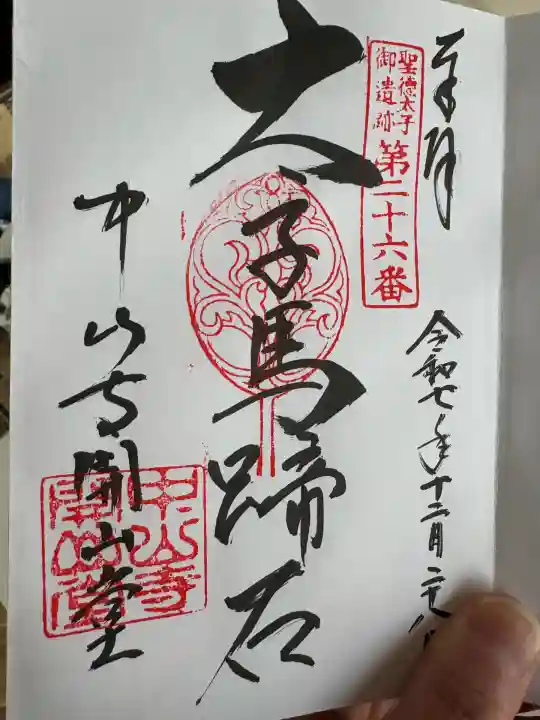 奉拝
聖徳太子
御遺跡
第二十六番
令和七年十二月
太子馬蹄石
中山寺開山堂
中山寺
開山堂